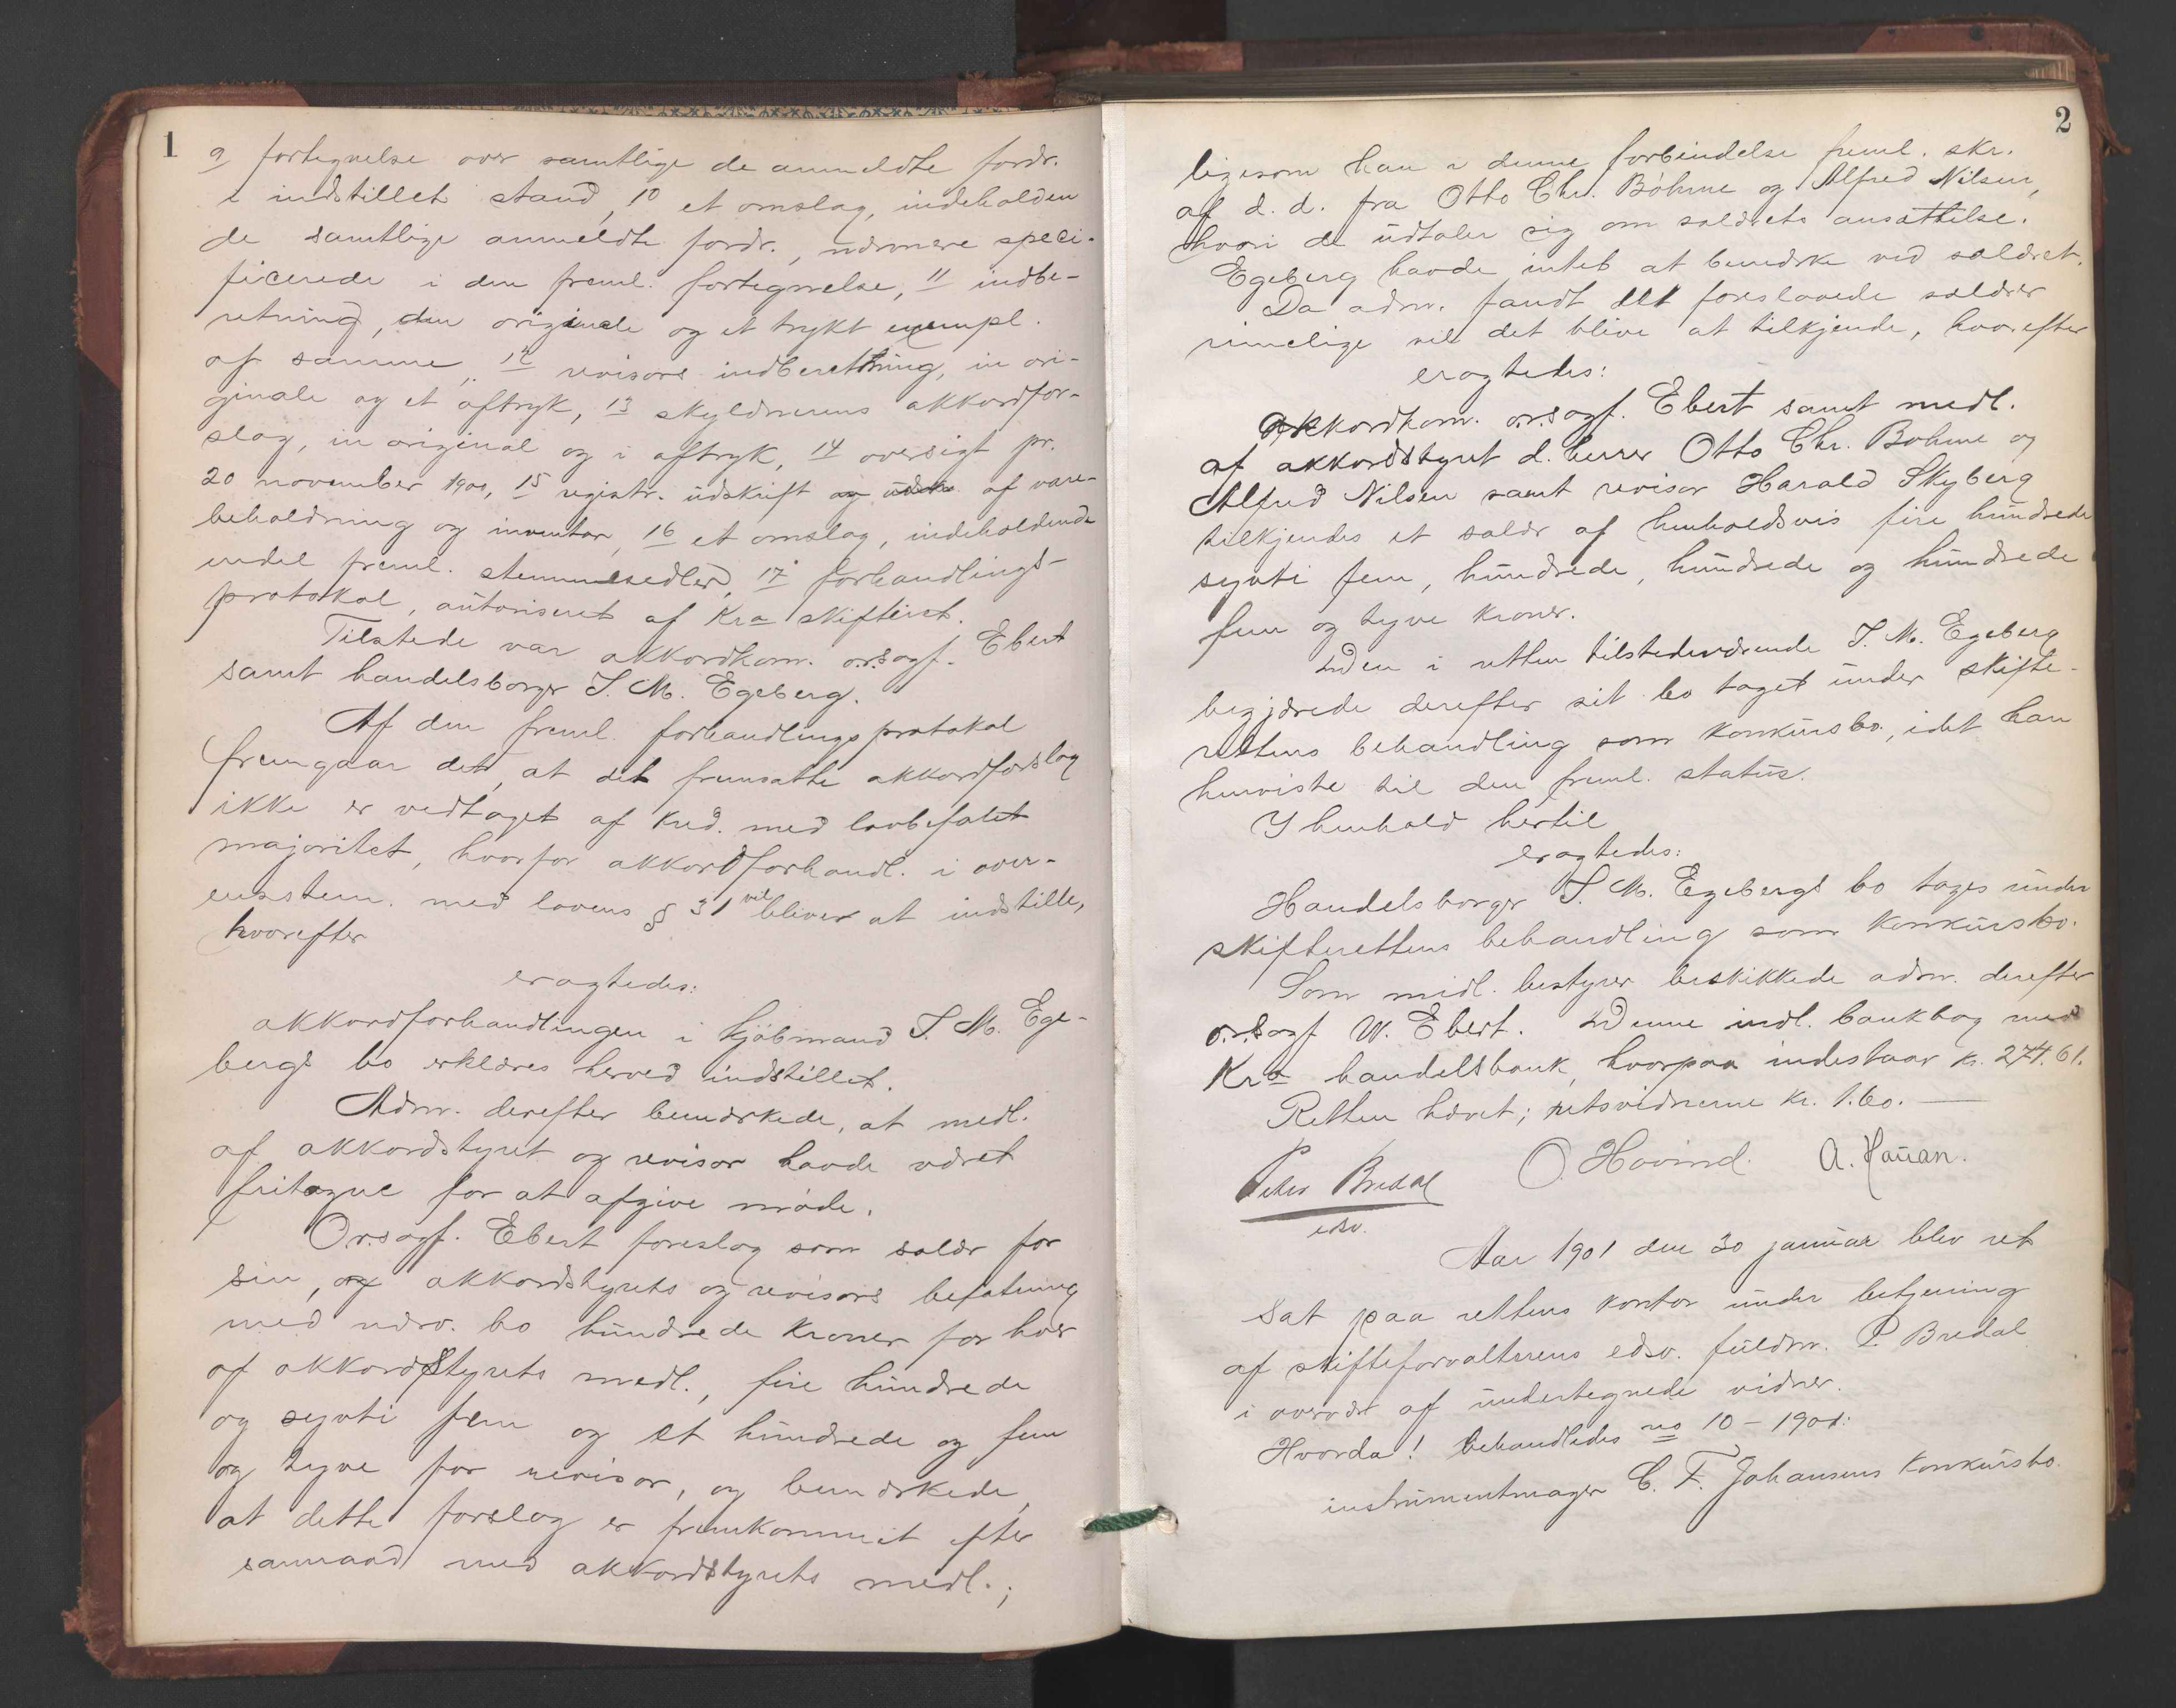 1
9 fortegnelse over samtlige de anmeldte fordr.
i indstillet stand, 10 et omslag, indeholden
de samtlige anmeldte fordr., nærmere speci-
ficerede i den freml. fortegnelse, 11 indbe-
retning, den originale og et trykt exempl.
af samme, 12 revisors indberetning, in ori-
ginale og et aftryk, 13 skyldnerens akkordfor-
slag, in original og i aftryk, 14 oversigt pr.
20 november 1900, 15 registr. udskrift af vare-
beholdning og inventar, 16 et omslag, indeholdende
endel freml. stemmesedler, 17 forhandlings-
protokol, autoriseret af Kra skifteret.
Tilstede var akkordkom. o.r.sagf. Ebert
samt handelsborger S. M. Egeberg.
Af den freml. forhandlingsprotokol
fremgaar det, at det fremsatte akkordforslag
ikke er vedtaget af kred. med lovbefalet
majoritet, hvorfor akkordforhandl. i over-
ensstem. med lovens § 31 vil bliver at indstille,
hvorefter
eragtedes:
akkordforhandlingen i kjøbmand S. M. Ege-
bergs bo erklæres herved indstillet.
Adm. derefter bemærkede, at medl.
af akkordstyret og revisor havde været
fritagne for at afgive møde.
O.r.sagf. Ebert foreslog som salær for
sin, og akkordstyrets og revisors befatning
med nærv. bo hundrede kroner for hver
af akkordstyrets medl., fire hundrede
og sytti fem og et hundrede og fem
og tyve for revisor, og bemærkede,
at dette forslag er fremkommet efter
samraad med akkordstyrets medl.;
2
ligesom han i denne forbindelse freml. skr.
af d.d. fra Otto Chr. Böhme og Alfred Nilsen,
hvori de udtaler sig om salærets ansættelse.
Egeberg havde intet at bemærke ved salæret.
Da adm. fandt det foreslaaede salærer
rimelige vil det blive at tilkjende, hvorefter
eragtedes:
Akkordkom. o.r.sagf. Ebert samt medl.
af akkordstyret d.herrer Otto Chr. Bøhme og
Alfred Nilsen samt revisor Harald Skyberg
tilkjendes et salær af henholdsvis fire hundrede
sytti fem, hundrede, hundrede og hundrede
fem og tyve kroner.
Den i retten tilstedeværende S. M. Egeberg
begjærede derefter sit bo taget under skifte-
rettens behandling som konkursbo, idet han
henviste til den freml. status.
I henhold hertil
eragtedes:
Handelsborger S. M. Egebergs bo tages under
skifterettens behandling som konkursbo.
Som midl. bestyrer beskikkede adm. derefter
o.r.sagf W. Ebert. Denne indl. bankbog med
Kra handelsbank, hvorpaa indestaar kr. 274.61.
Retten hævet; retsvidnerne kr. 1.60.
Peter Bredal O. Hovind. A. Hauan.
edsv.
Aar 1901 den 30 januar blev ret
sat paa rettens kontor under betjening
af skifteforvalterens edsv. fuldm. P. Bredal
i overvær af undertegnede vidner.
Hvorda! behandledes no 10 - 1901:
instrumentmager C. F. Johansens konkursbo.